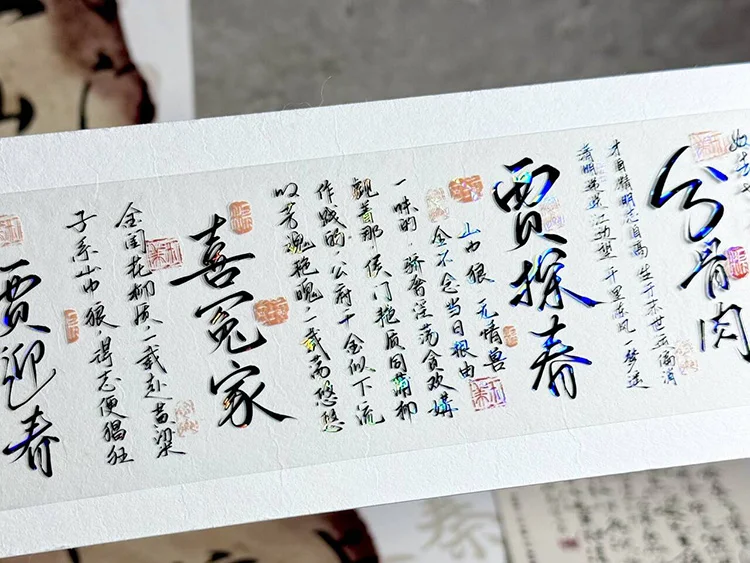 分骨肉
才自精明志自高 生于末世运偏消
清明涕送江边望 千里东风一梦遥
贾探春
山中狼 无情兽
全不念当日根由
一味的，骄奢淫荡贪欢媾
觑着那侯门艳质同蒲柳
作贱的，公府千金似下流
叹芳魂艳魄，一载荡悠悠
喜冤家
金闺花柳质，一载赴黄粱
子系山中狼，得志便猖狂
贾迎春